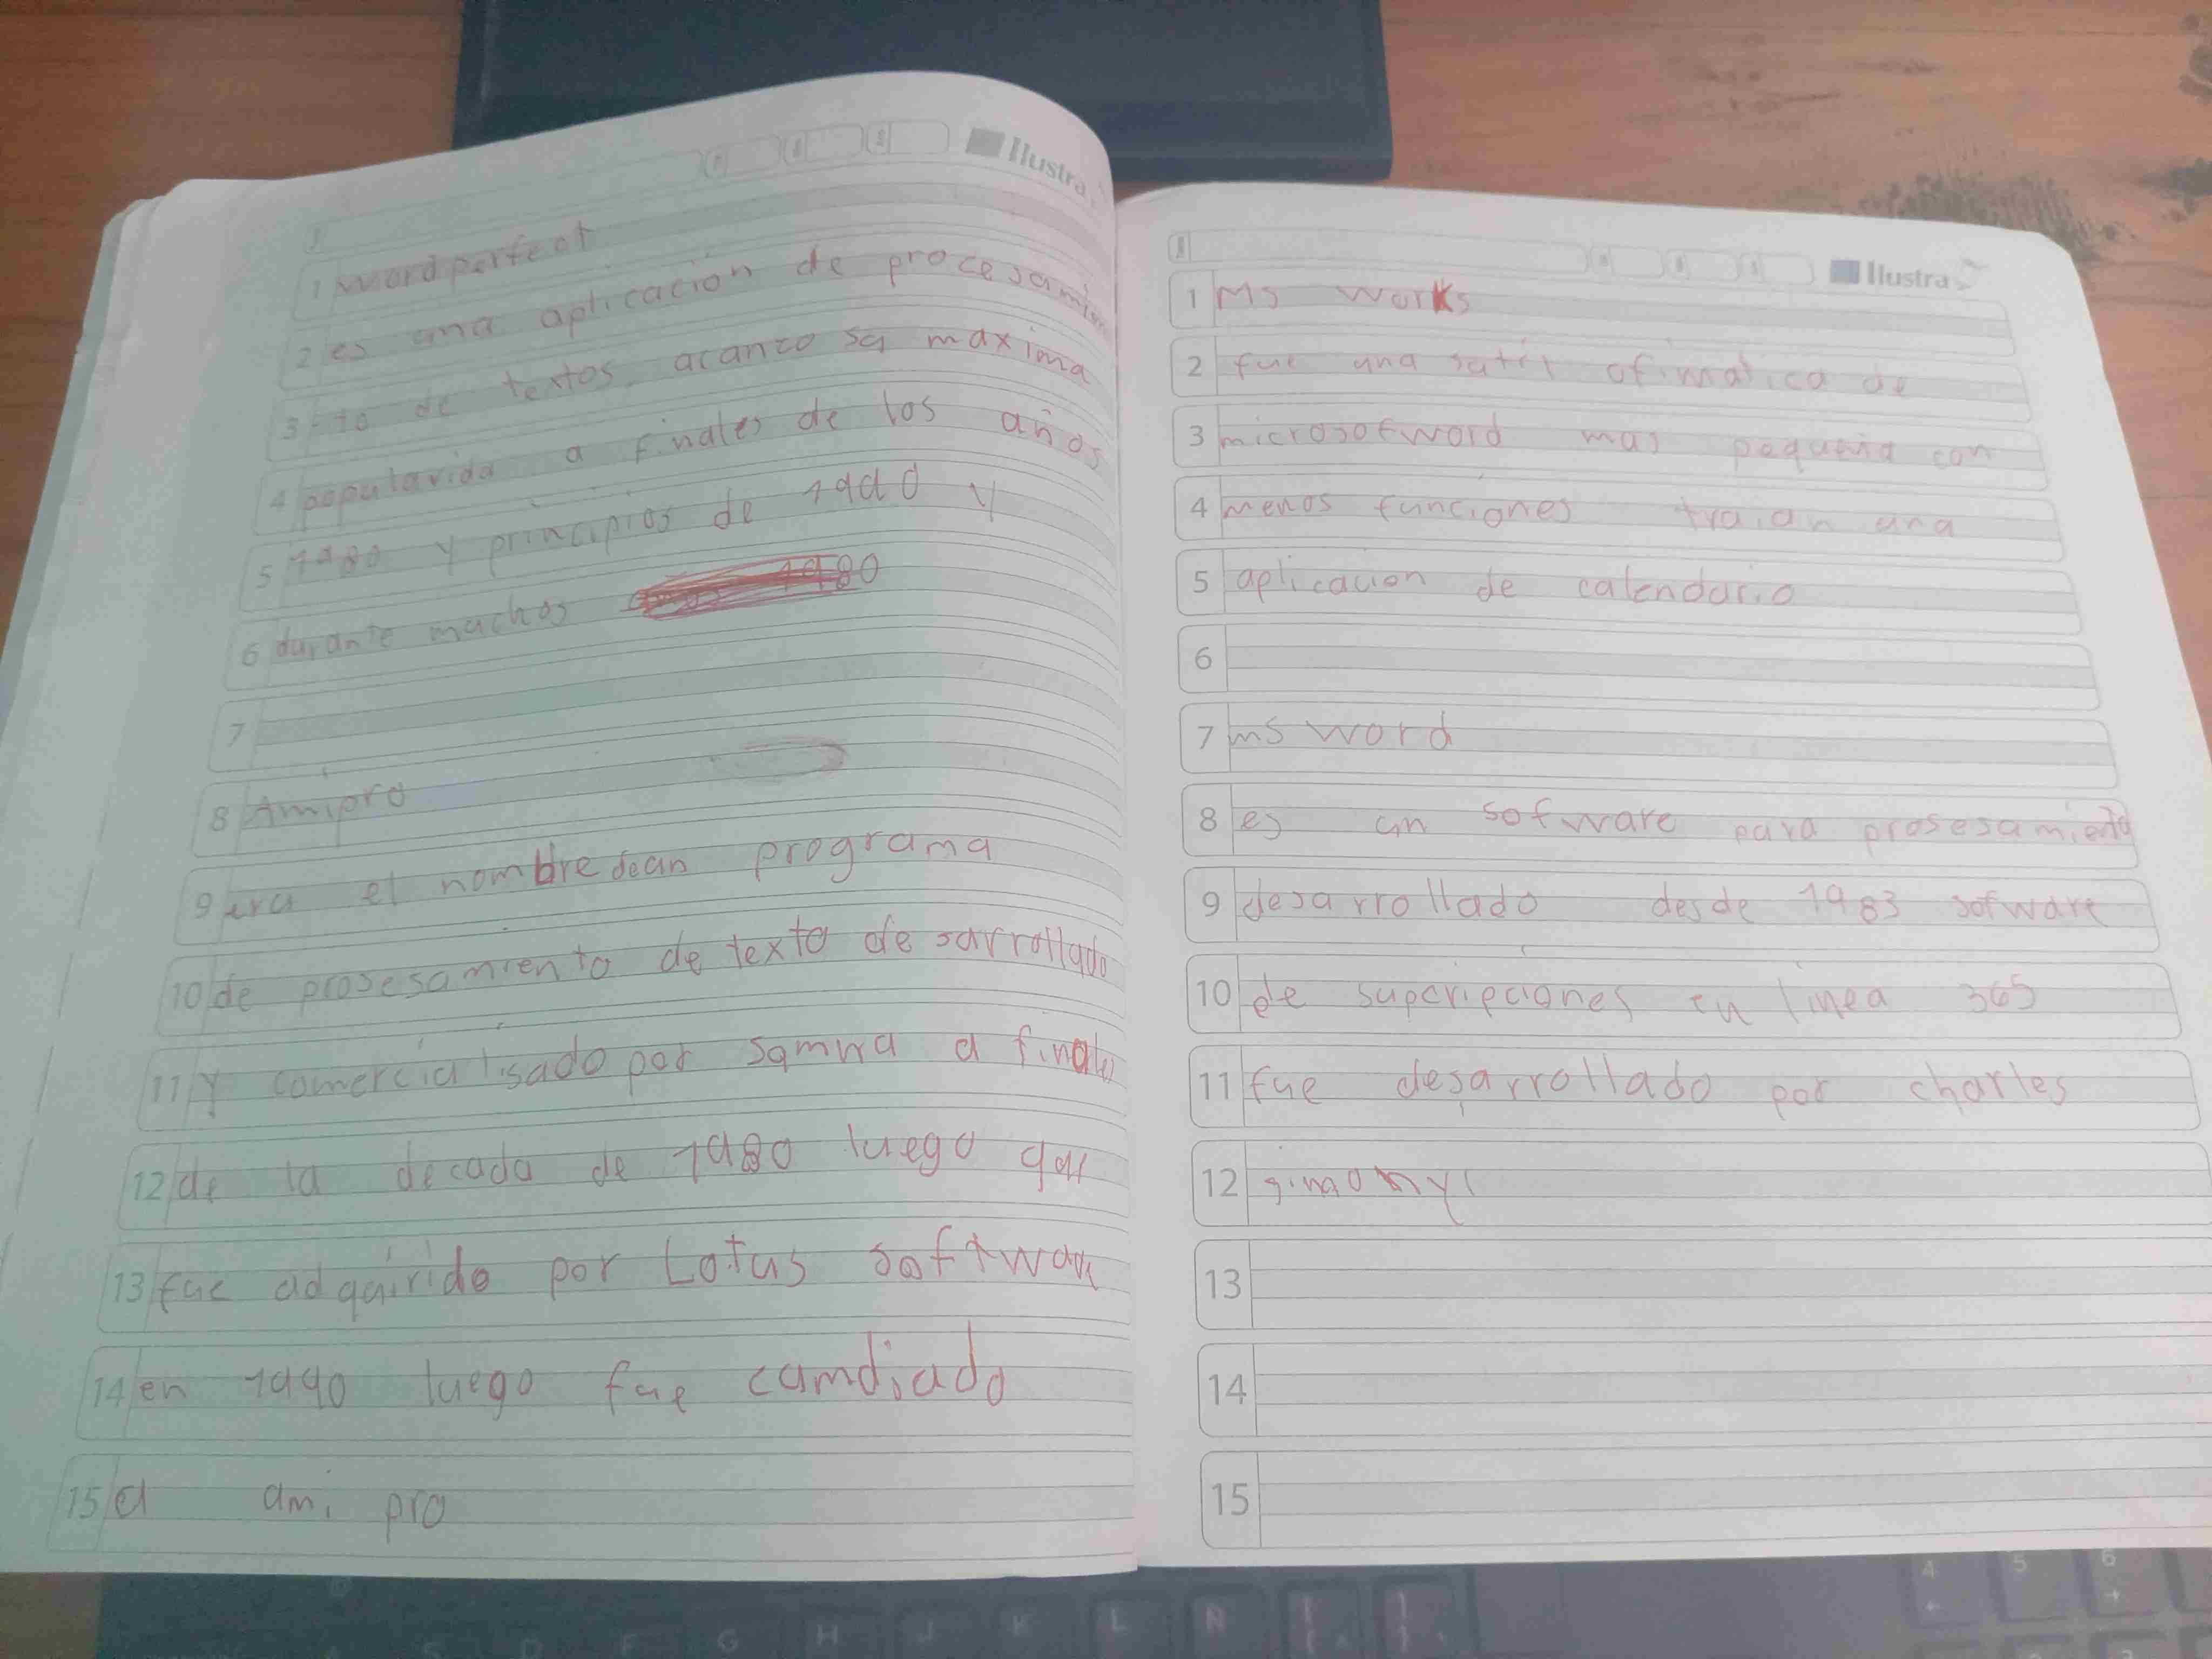 Ilustra
1 wordperfect
2 es una aplicacion de procesamien
3 to de textos acanzo su maxima
4 popularida a finales de los años
5 1980 y principios de 1990 y
6 durante muchos 1980
7
8 Amipro
9 era el nombre deun programa
10 de prosesamiento de texto desarrollado
11 y comercialisado por samna a finales
12 de la decada de 1980 luego que
13 fue adquirido por Lotus software
14 en 1990 luego fue camdiado
15 a ami pro
Ilustra
1 Ms works
2 fue una ofimatica de
3 microsofword mas pequeña con
4 menos funciones traian una
5 aplicacion de calendario
6
7 ms word
8 es un software para prosesamiento
9 desarrollado desde 1983 sofware
10 de supcripciones en linea 365
11 fue desarrollado por charles
12
13
14
15
G H J K L Ñ
4 5 6